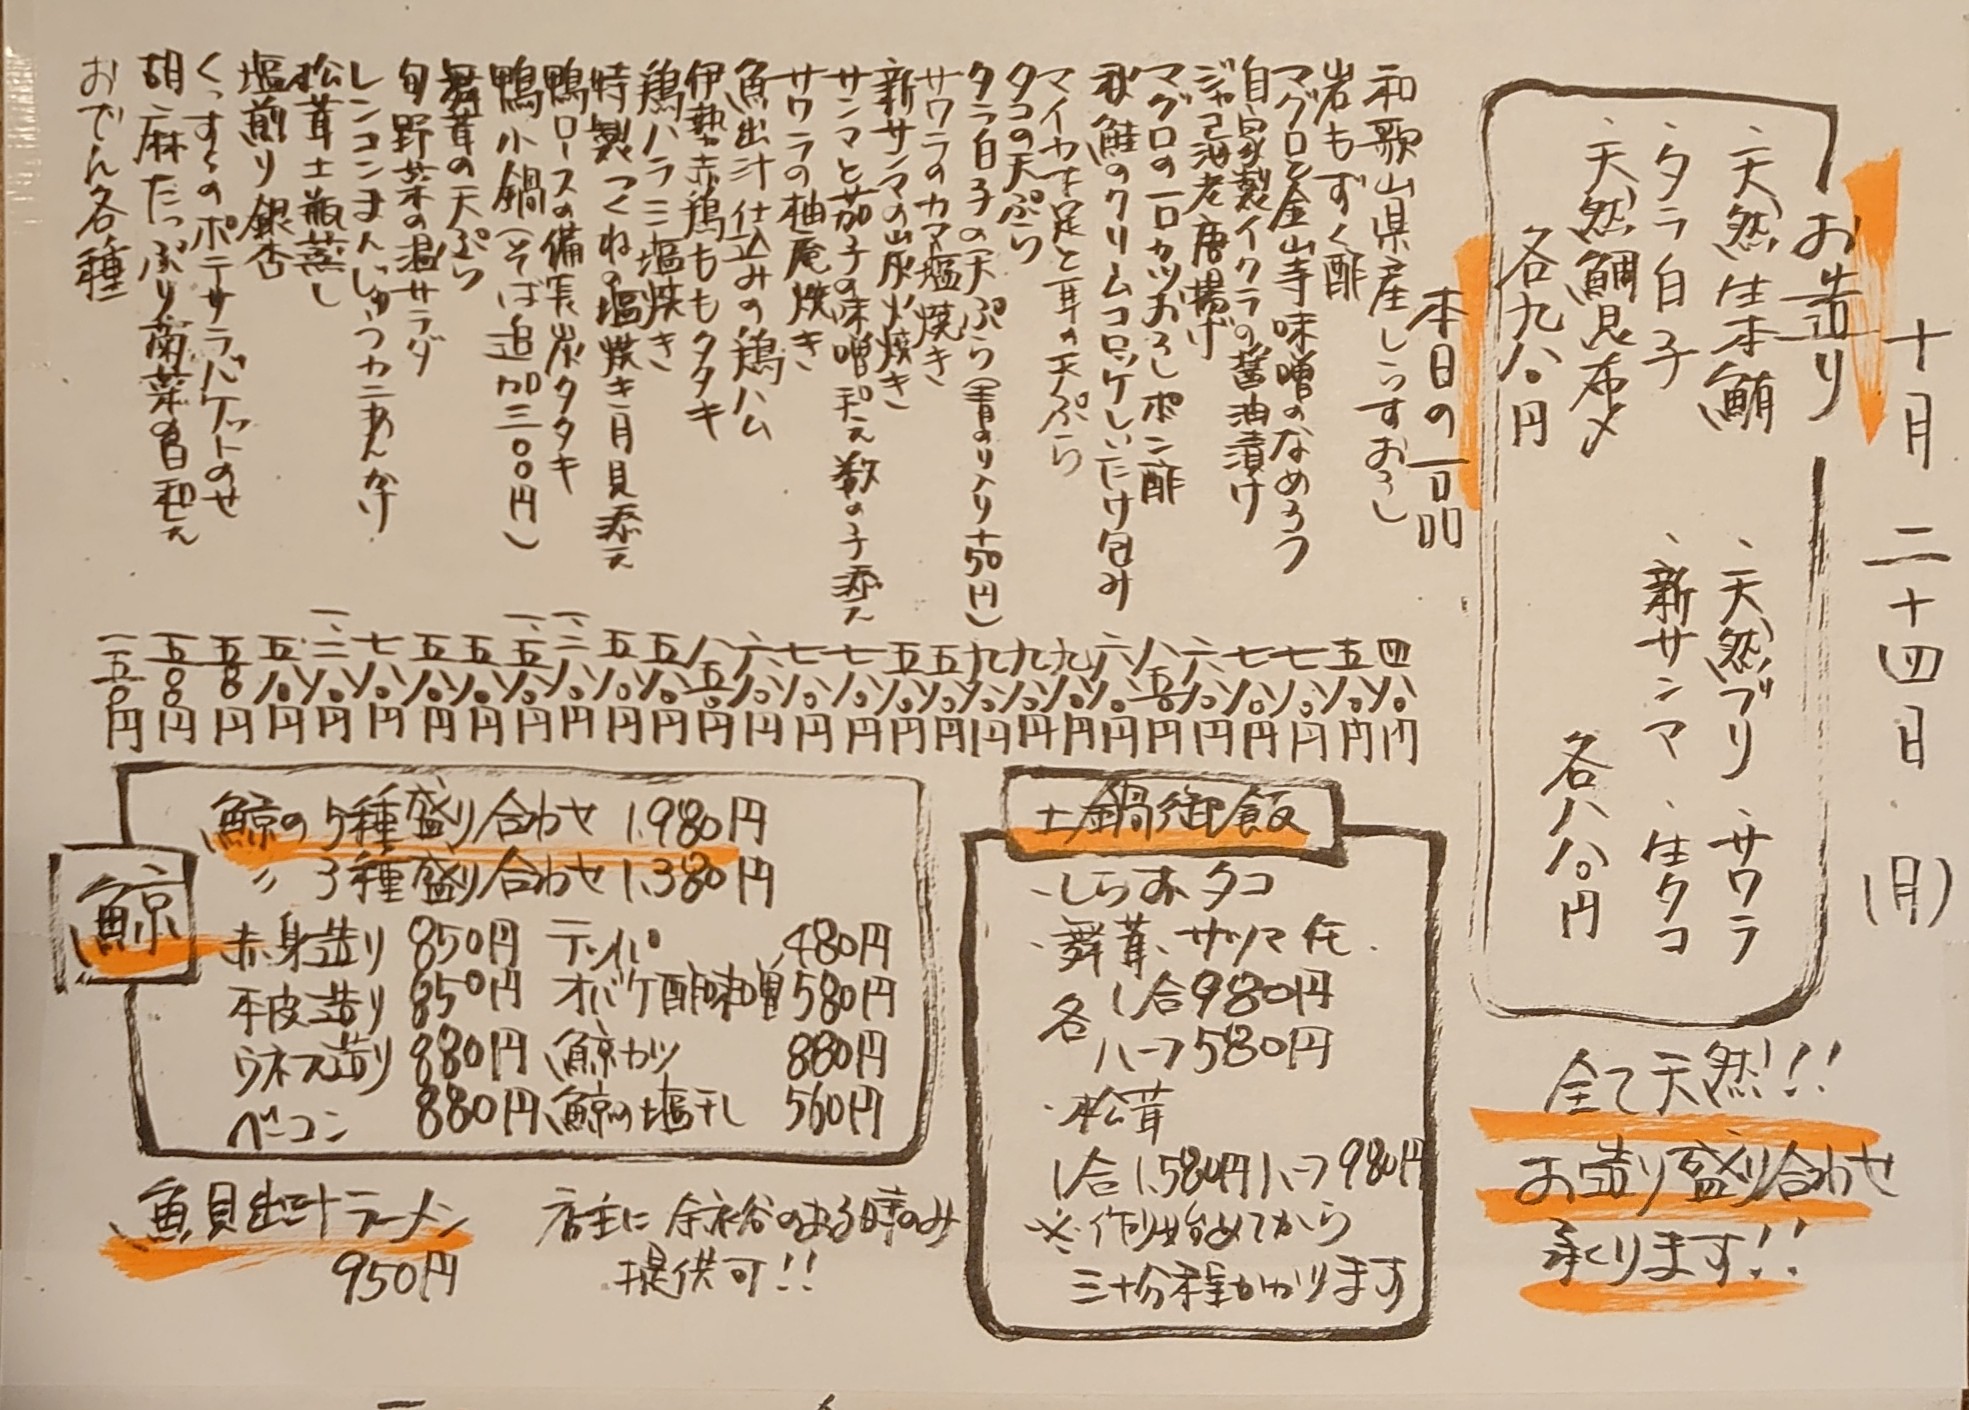 十月二十四日(月)
お造り
、天然生本鮪
、タラ白子
、天然鯛昆布〆
各九八〇円
、天然ブリ 、サワラ
、新サンマ 、生タコ
各八八〇円
全て天然!!
お造り盛り合わせ
承ります!!
本日の一品
和歌山県産しらすおろし 四八〇円
岩もずく酢 五八〇円
マグロと金山寺味噌のなめろう 七八〇円
自家製イクラの醤油漬け 七八〇円
ジャコ海老唐揚げ 六八〇円
マグロの一口カツおろしポン酢 八五〇円
秋鮭のクリームコロッケしいたけ包み 六八〇円
マイカ下足と耳の天ぷら 九八〇円
タコの天ぷら 九八〇円
タラ白子の天ぷら(青のり入り+50円) 九八〇円
サワラのカマ塩焼き 五八〇円
新サンマの炭火焼き 五八〇円
サンマと茄子の味噌和え数の子添え 七八〇円
サワラの柚庵焼き 七八〇円
魚出汁仕込みの鶏ハム 六八〇円
伊勢赤鶏ももタタキ 八五〇円
鶏ハラミ塩焼き 五八〇円
特製つくねの塩焼き月見添え 五八〇円
鴨ロースの備長炭タタキ 一、二八〇円
鴨小鍋(そば追加三〇〇円) 一、五八〇円
舞茸の天ぷら 五八〇円
旬野菜の温サラダ 五八〇円
レンコンまんじゅうカニあんかけ 七八〇円
松茸土瓶蒸し 一、二八〇円
塩煎り銀杏 五八〇円
くっすりのポテサラバケットのせ 五五〇円
胡麻たっぷり菊菜の白和え 五〇〇円
おでん各種 一五〇円
土鍋御飯
・しらす、タコ
・舞茸、サツマ芋
各 1合980円
ハーフ580円
・松茸
1合1.580円ハーフ980円
※作り始めてから
三十分程かかります
鯨
鯨の5種盛り合わせ 1.980円
〃 3種盛り合わせ 1.380円
赤身造り 850円 テッパ 480円
本皮造り 850円 オバケ酢味噌 580円
ウネス造り 880円 鯨カツ 880円
ベーコン 880円 鯨の塩干し 560円
魚貝出汁ラーメン
950円
店主に余裕のある時のみ
提供可!!